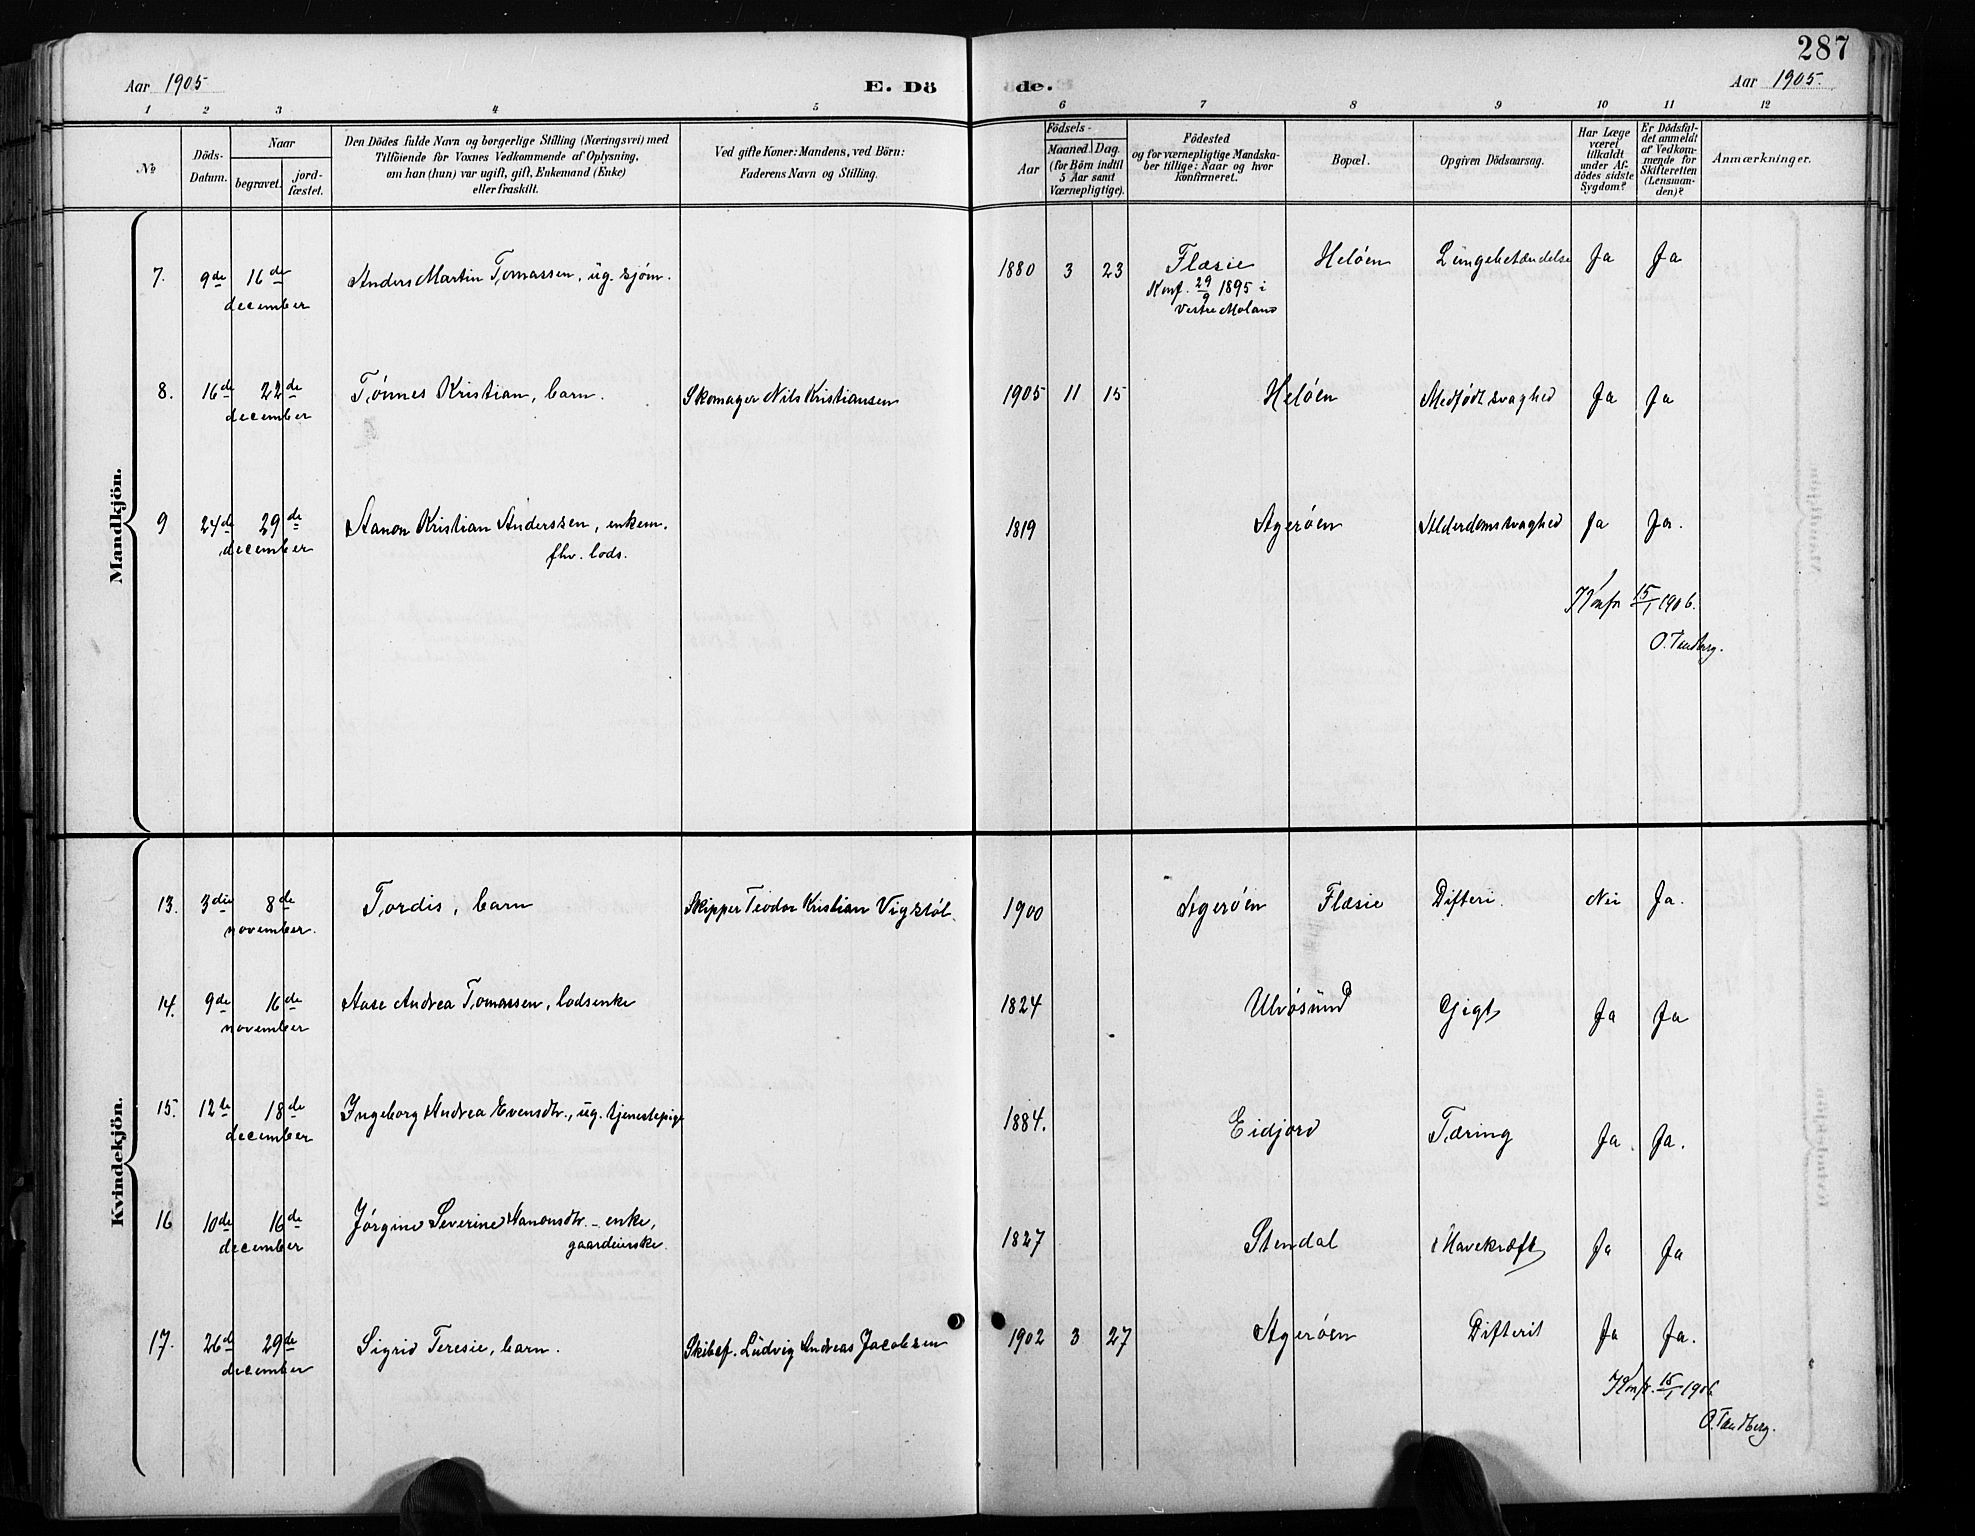 287
Aar 1905
E. Dö
de.
Aar 1905.
1 2 3 4 5 6 7 8 9 10 11 12
No
Döds-
Datum.
Naar
begravet.
jord-
fæstet.
Den Dödes fulde Navn og borgerlige Stilling (Næringsvei) med
Tilföiende for Voxnes Vedkommende af Oplysning,
om han (hun) var ugift, gift, Enkemand (Enke)
eller fraskilt.
Ved gifte Koner: Mandens, ved Börn:
Faderens Navn og Stilling.
Födsels-
Aar
Maaned. Dag.
(for Börn indtil
5 Aar samt
Værnepligtige).
Födested
og for værnepligtige Mandska-
ber tillige: Naar og hvor
konfirmeret.
Bopæl.
Opgiven Dödsaarsag.
Har Læge
været
tilkaldt
under Af-
dödes sidste
Sygdom?
Er Dödsfal-
det anmeldt
af Vedkom-
mende for
Skifteretten
(Lensman-
den)?
Anmærkninger.
Mandkjön.
7. 9de 16de Anders Martin Tomassen, ug. sjøm. 1880 3 23 Flæsie Heløen Lungebetændelse Ja Ja
december
Konf. 29/9 1895 i
Vestre Moland
8. 16de 22de Tønnes Kristian, barn. Skomager Nils Kristiansen 1905 11 15 Heløen Medfødt svaghed Ja Ja
december
9 24de 29de Aanon Kristian Anderssen, enkem. 1819 Agerøen Alderdomssvaghed Ja Ja.
december
fhv. lods.
Konfr 15/1 1906.
O. Tandberg.
Kvindekjön.
13. 3die 8de Tordis, barn Skipper Teodor Kristian Vigstøl. 1900 Agerøen Flæsie Difteri. Nei Ja.
november.
14. 9de 16de Aase Andrea Tomassen, lodsenke 1824 Ulvøsund Gigt Ja Ja
november
15. 12te 18de Ingeborg Andrea Evensdtr., ug. tjenestepige 1884. Eidjord Tæring Ja. Ja.
december
16 10de 16de Jørgine Severine Aanonsdtr. - enke, 1827 Stendal Mavekræft Ja Ja
december
gaardeierske.
17. 26de 29de Sigrid Teresie, barn. Skibsf. Ludvig Andreas Jacobsen 1902 3 27 Agerøen Difterit Ja Ja.
december
Konfr. 15/1 1906
O. Tandberg.